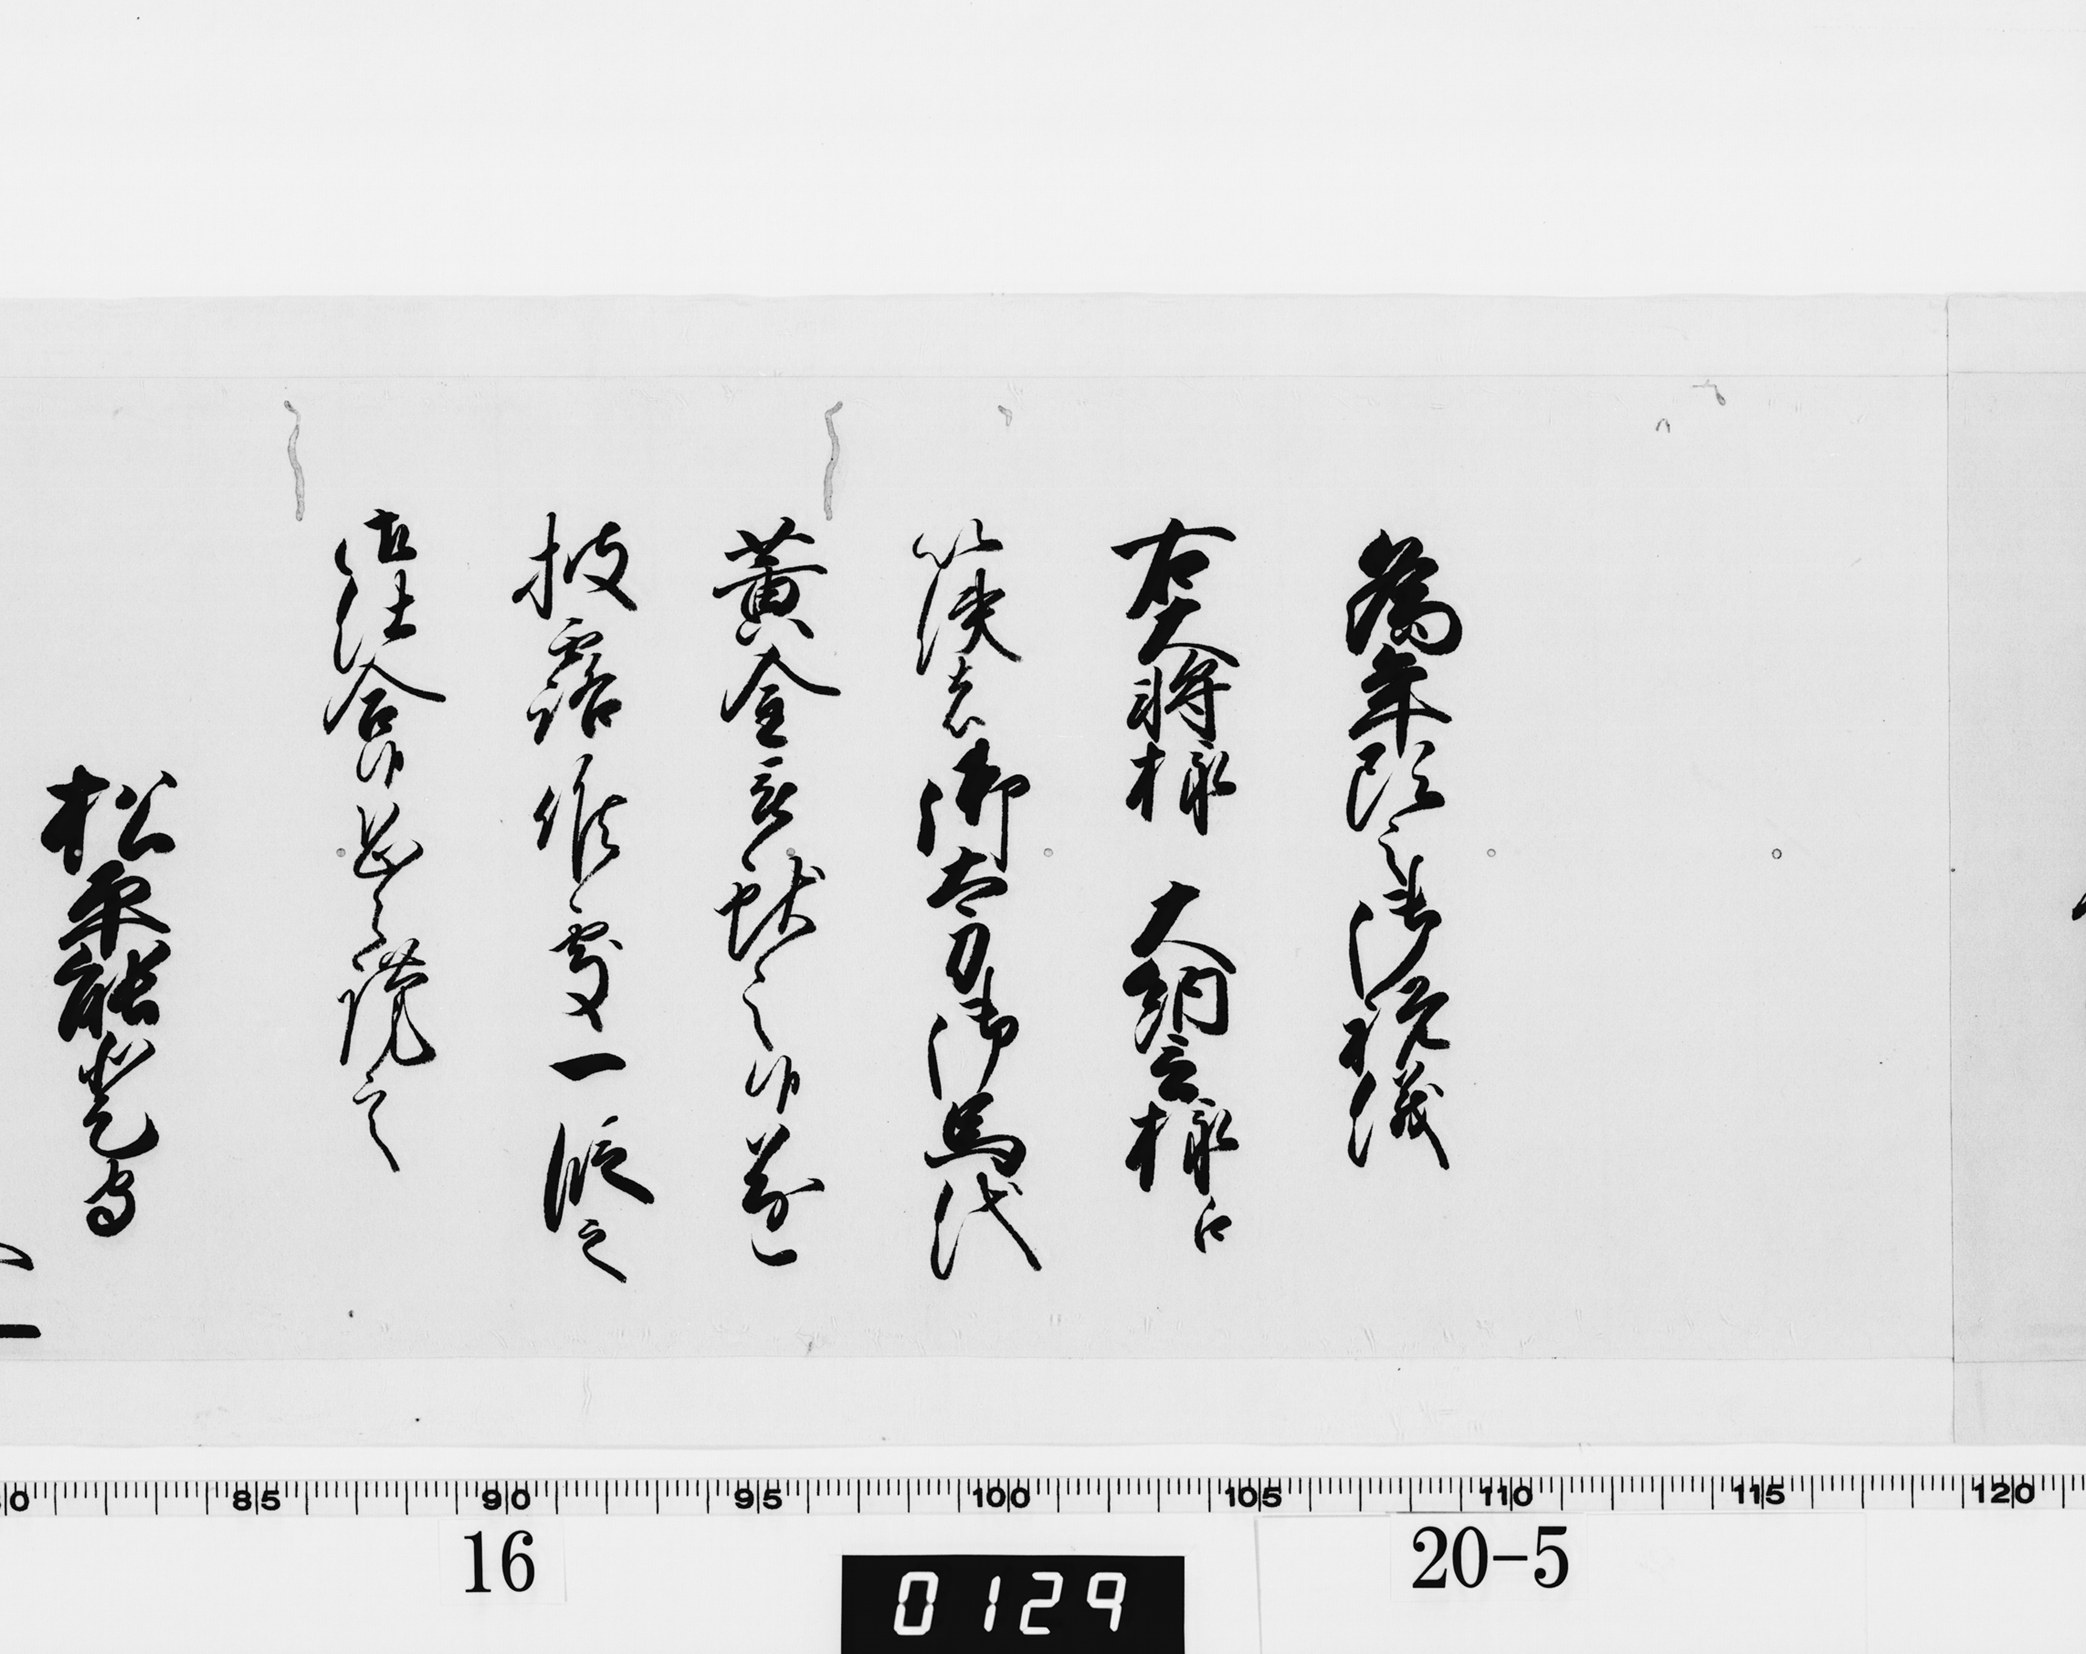 為年頭之御祝儀
右大将様 大納言様江
以使者御太刀御馬代
黄金被献之候遂
披露候處一段之
御仕合候恐々謹言
松平能登守
80 85 90 95 100 105 110 115 120
16 20-5
0129